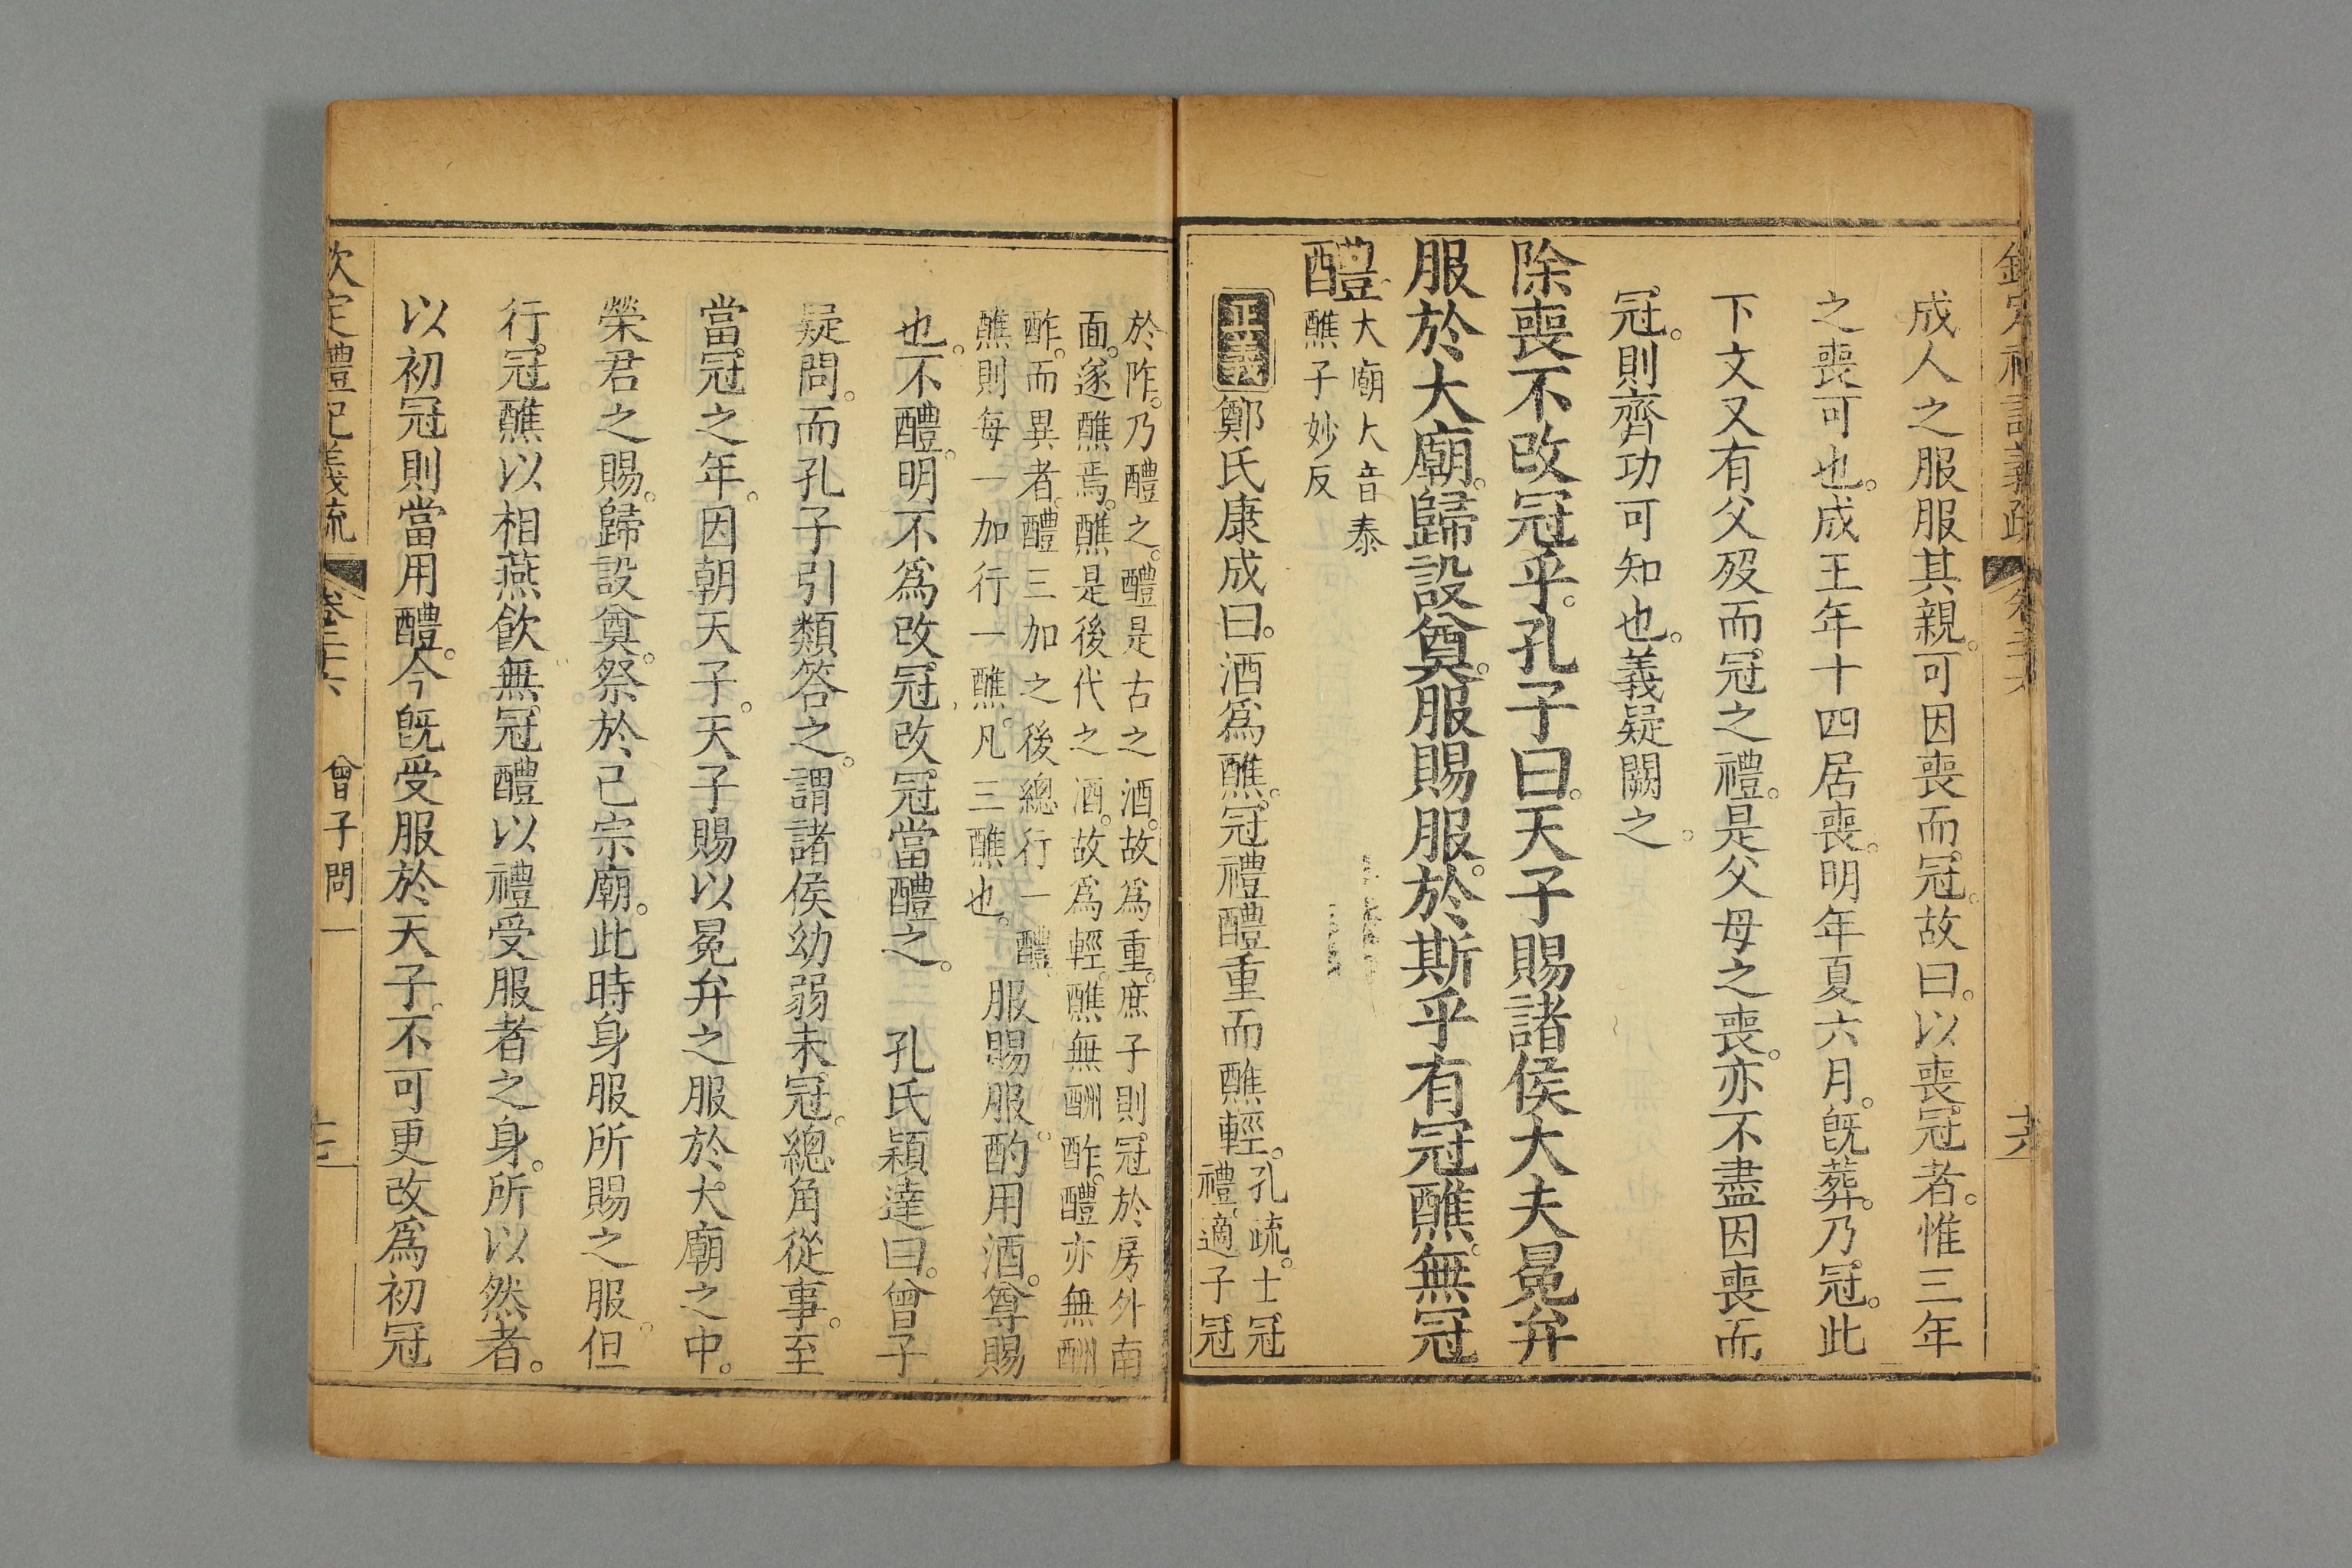 成人之服服其親。可因喪而冠。故曰。以喪冠者。惟三年
之喪可也。成王年十四居喪。明年夏六月。旣葬。乃冠。此
下文又有父歿而冠之禮。是父母之喪。亦不盡因喪而
冠。則齊功可知也。義疑闕之。
除喪不改冠乎。孔子曰。天子賜諸侯大夫冕弁
服於大廟。歸設奠。服賜服。於斯乎有冠醮。無冠
醴。
大廟大音泰
醮子妙反
正義鄭氏康成曰。酒爲醮。冠禮醴重而醮輕。
孔疏。士冠
禮適子冠
於阼。乃醴之。醴是古之酒。故爲重。庶子則冠於房外南
面。遂醮焉。醮是後代之酒。故爲輕。醮無酬酢。醴亦無酬
酢。而異者。醴三加之後總行一醴。
醮則每一加行一醮。凡三醮也。
服賜服。酌用酒。尊賜
也。不醴。明不爲改冠。改冠當醴之。 孔氏穎達曰。曾子
疑問。而孔子引類答之。謂諸侯幼弱未冠。總角從事。至
當冠之年。因朝天子。天子賜以冕弁之服於大廟之中。
榮君之賜。歸設奠。祭於己宗廟。此時身服所賜之服。但
行冠醮以相燕飮。無冠醴以禮受服者之身。所以然者。
以初冠則當用醴。今旣受服於天子。不可更改爲初冠
欽定禮記義疏 卷二十六 曾子問一